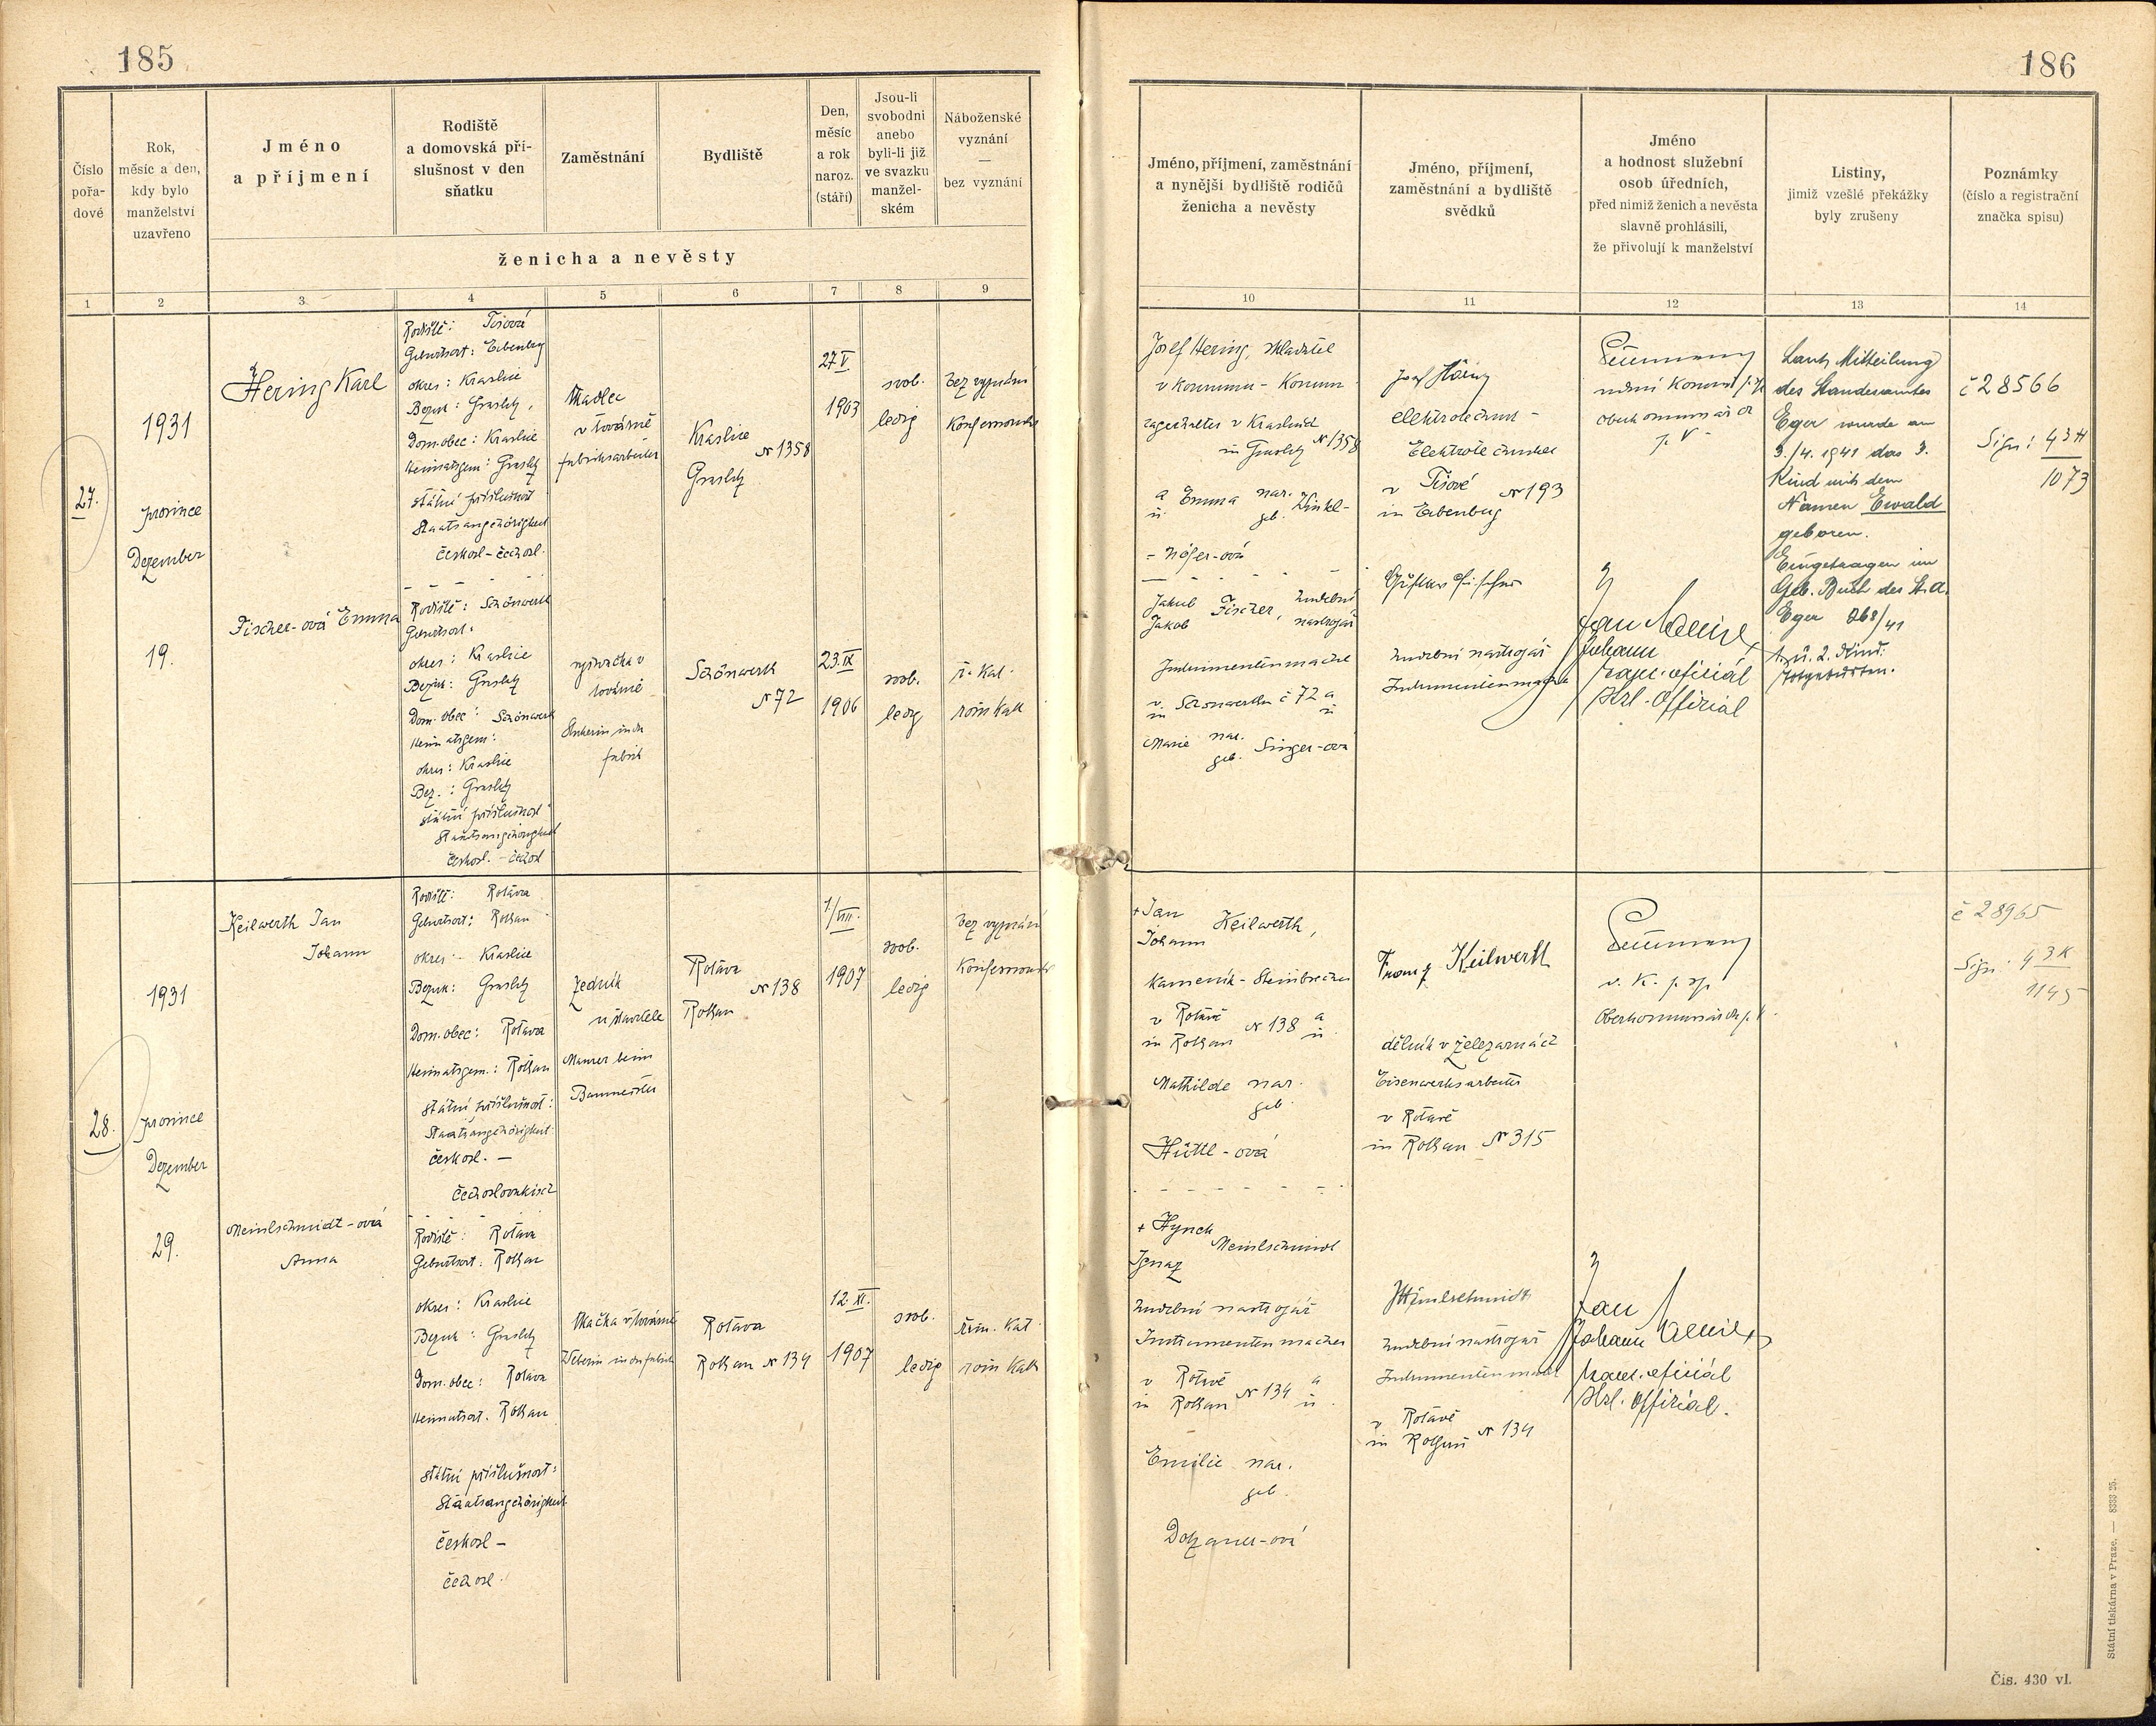 185
Číslo
pořa-
dové
Rok,
měsíc a den,
kdy bylo
manželství
uzavřeno
Jméno
a příjmení
Rodiště
a domovská pří-
slušnost v den
sňatku
Zaměstnání
Bydliště
Den,
měsíc
a rok
naroz.
(stáří)
Jsou-li
svobodni
anebo
byli-li již
ve svazku
manžel-
ském
Náboženské
vyznání
—
bez vyznání
ženicha a nevěsty
1 2 3 4 5 6 7 8 9
27.
1931
prosince
Dezember
19.
Hering Karl
Fischer-ová Emma
Rodiště: Tisová
Geburtsort: Eibenberg
okres: Kraslice
Bezirk: Graslitz,
Dom. obec: Kraslice
Heimatsgem: Graslitz
státní příslušnost
Staatsangehörigkeit
českosl-čechosl.
Rodiště: Schönwerth
Geburtsort:
okres: Kraslice
Bezirk: Graslitz
Dom. obec: Schönwerth
Heimatsgem:
okres: Kraslice
Bez.: Graslitz
státní příslušnost
Staatsangehörigkeit
českosl. - čechosl
tkadlec
v továrně
fabriksarbeiter
továrně
fabrik
Kraslice
№ 1358
Graslitz
Schönwerth
№ 72
27 V
1903
23. IX
1906
svob.
ledig
svob.
ledig
bez vyznání
konfessionslos
ř. kat.
röm kath
28.
1931
prosince
Dezember
29.
Keilwerth Jan
Johann
Meinlschmidt-ová
Anna
Rodiště: Rotava
Geburtsort: Rothau
okres - Kraslice
Bezirk: Graslitz
Dom. obec: Rotava
Heimatsgem.: Rothau
státní příslušnost:
Staatsangehörigkeit:
českosl. -
čechoslovakisch
Rodiště: Rotava
Geburtsort: Rothau
okres: Kraslice
Bezirk: Graslitz
Dom. obec: Rotava
Heimatsort. Rothau
státní příslušnost:
Staatsangehörigkeit
českosl -
čechosl.
zedník
u stavitele
Maurer beim
Baumeister
tkačka v továrně
Weberin in der fabrik
Rotava
№ 138
Rothau
Rotava
Rothau № 134
1/VIII.
1907
12. XI.
1907
svob.
ledig
svob.
ledig
bez vyznání
konfessionslos
řím. kat
röm kath
186
Jméno, příjmení, zaměstnání
a nynější bydliště rodičů
ženicha a nevěsty
Jméno, příjmení,
zaměstnání a bydliště
svědků
Jméno
a hodnost služební
osob úředních,
před nimiž ženich a nevěsta
slavně prohlásili,
že přivolují k manželství
Listiny,
jimiž vzešlé překážky
byly zrušeny
Poznámky
(číslo a registrační
značka spisu)
10 11 12 13 14
Josef Hering, skladatel
v Kraslicích
in Graslitz № 1358
a
u. Emma nar.
geb. Winkl-
- höfer-ová
Jakub
Jakob Fischer, hudební
nástrojař
Instrumentenmacher
v
in Schönwerthu č 72 a
u
Marie nar.
geb. Singer-ová
Josef Hering
elektrotechnik -
Elektrotechniker
v Tisové
in Eibenberg № 193
Gustav Fischer
hudební nástrojař
Instrumentenmacher
Oberkommissär
Jan
Johann
kanc. oficiál
Kzl. Offizial
Laut Mitteilung
des Standesamtes
Eger wurde am
3./4. 1941 das 3.
Kind mit dem
Namen Ewald
geboren.
Eingetragen im
Geb. Buch des St.A.
Eger 268/41
1. u. 2. Kind:
Totgeburten.
č 28566
Sign: 43H
1073
+ Jan
Johann Keilwerth,
kameník - Steinbrecher
v Rotavě
in Rothau № 138 a
u.
Mathilde nar.
geb.
Hüttl-ová
+ Hynek
Ignaz Meinlschmidt
hudební nástrojař
Instrumentenmacher
v Rotavě
in Rothau № 134 a
u.
Emilie nar.
geb.
Dotzauer-ová
Franz Keilwerth
dělník v železárnách
Eisenwerksarbeiter
v Rotavě
in Rothau № 315
Meinlschmidt
hudební nástrojař
Instrumentenmacher
v Rotavě
in Rothau № 134
Oberkommissär
Jan
Johann
kanc. oficiál
Kzl. Offizial.
č 28965
Sign: 43K
1145
Státní tiskárna v Praze. — 8333 25.
Čís. 430 vl.